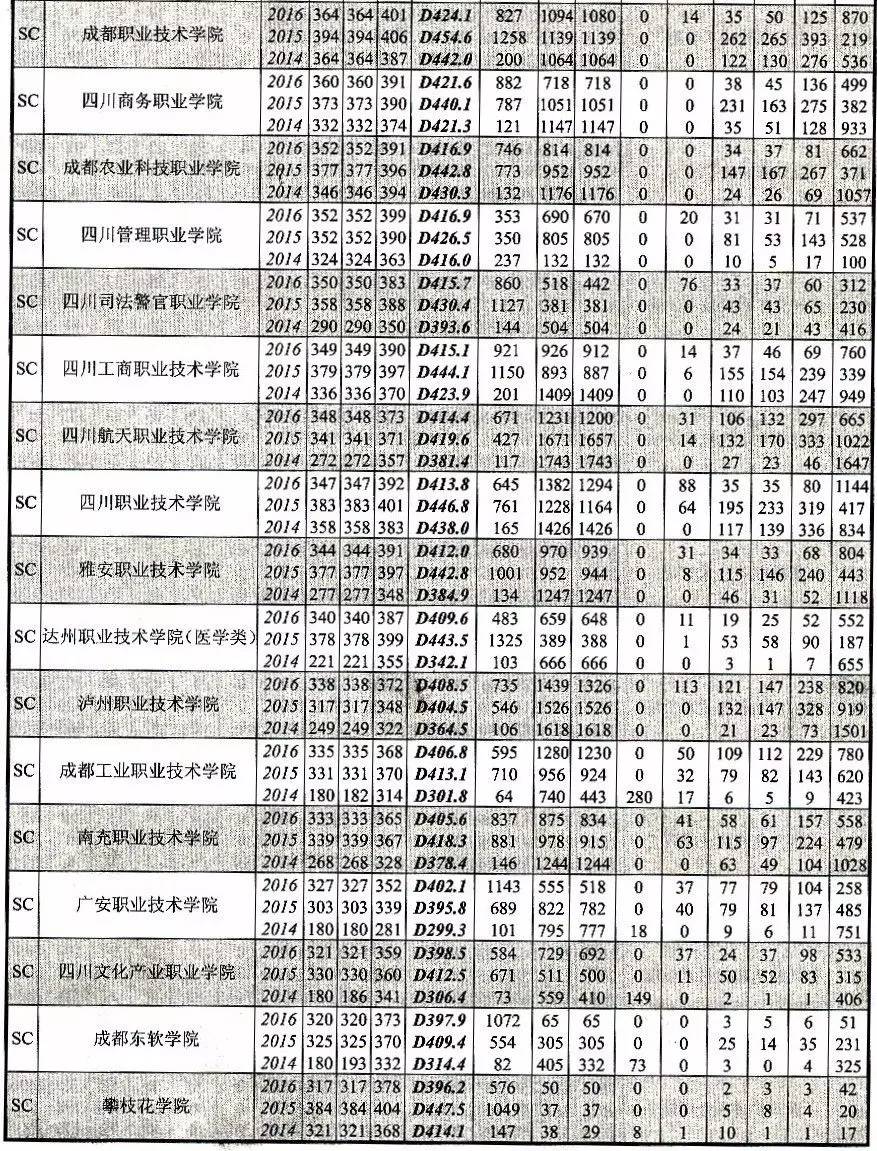 2016 364 364 401 D424.1 827 1094 1080 0 14 35 50 125 870
SC 成都职业技术学院 2015 394 394 406 D454.6 1258 1139 1139 0 0 262 265 393 219
2014 364 364 387 D442.0 200 1064 1064 0 0 122 130 276 536
2016 360 360 391 D421.6 882 718 718 0 0 38 45 136 499
SC 四川商务职业学院 2015 373 373 390 D440.1 787 1051 1051 0 0 231 163 275 382
2014 332 332 374 D421.3 121 1147 1147 0 0 35 51 128 933
2016 352 352 391 D416.9 746 814 814 0 0 34 37 81 662
SC 成都农业科技职业学院 2015 377 377 396 D442.8 773 952 952 0 0 147 167 267 371
2014 346 346 394 D430.3 132 1176 1176 0 0 24 26 69 1057
2016 352 352 399 D416.9 353 690 670 0 20 31 31 71 537
SC 四川管理职业学院 2015 352 352 390 D426.5 350 805 805 0 0 81 53 143 528
2014 324 324 363 D416.0 237 132 132 0 0 10 5 17 100
2016 350 350 383 D415.7 860 518 442 0 76 33 37 60 312
SC 四川司法警官职业学院 2015 358 358 388 D430.4 1127 381 381 0 0 43 43 65 230
2014 290 290 350 D393.6 144 504 504 0 0 24 21 43 416
2016 349 349 390 D415.1 921 926 912 0 14 37 46 69 760
SC 四川工商职业技术学院 2015 379 379 397 D444.1 1150 893 887 0 6 155 154 239 339
2014 336 336 370 D423.9 201 1409 1409 0 0 110 103 247 949
2016 348 348 373 D414.4 671 1231 1200 0 31 106 132 297 665
SC 四川航天职业技术学院 2015 341 341 371 D419.6 427 1671 1657 0 14 132 170 333 1022
2014 272 272 357 D381.4 117 1743 1743 0 0 27 23 46 1647
2016 347 347 392 D413.8 645 1382 1294 0 88 35 35 80 1144
SC 四川职业技术学院 2015 383 383 401 D446.8 761 1228 1164 0 64 195 233 319 417
2014 358 358 383 D438.0 165 1426 1426 0 0 117 139 336 834
2016 344 344 391 D412.0 680 970 939 0 31 34 33 68 804
SC 雅安职业技术学院 2015 377 377 397 D442.8 1001 952 944 0 8 115 146 240 443
2014 277 277 348 D384.9 134 1247 1247 0 0 46 31 52 1118
2016 340 340 387 D409.6 483 659 648 0 11 19 25 52 552
SC 达州职业技术学院(医学类) 2015 378 378 399 D443.5 1325 389 388 0 1 53 58 90 187
2014 221 221 355 D342.1 103 666 666 0 0 3 1 7 655
2016 338 338 372 D408.5 735 1439 1326 0 113 121 147 238 820
SC 泸州职业技术学院 2015 317 317 348 D404.5 546 1526 1526 0 0 132 147 328 919
2014 249 249 322 D364.5 106 1618 1618 0 0 21 23 73 1501
2016 335 335 368 D406.8 595 1280 1230 0 50 109 112 229 780
SC 成都工业职业技术学院 2015 331 331 370 D413.1 710 956 924 0 32 79 82 143 620
2014 180 182 314 D301.8 64 740 443 280 17 6 5 9 423
2016 333 333 365 D405.6 837 875 834 0 41 58 61 157 558
SC 南充职业技术学院 2015 339 339 367 D418.3 881 978 915 0 63 115 97 224 479
2014 268 268 328 D378.4 146 1244 1244 0 0 63 49 104 1028
2016 327 327 352 D402.1 1143 555 518 0 37 77 79 104 258
SC 广安职业技术学院 2015 303 303 339 D395.8 689 822 782 0 40 79 81 137 485
2014 180 180 281 D299.3 101 795 777 18 0 9 6 11 751
2016 321 321 359 D398.5 584 729 692 0 37 24 37 98 533
SC 四川文化产业职业学院 2015 330 330 360 D412.5 671 511 500 0 11 50 52 83 315
2014 180 186 341 D306.4 73 559 410 149 0 2 1 1 406
2016 320 320 373 D397.9 1072 65 65 0 0 3 5 6 51
SC 成都东软学院 2015 325 325 370 D409.4 554 305 305 0 0 25 14 35 231
2014 180 193 332 D314.4 82 405 332 73 0 3 0 4 325
2016 317 317 378 D396.2 576 50 50 0 0 2 3 3 42
SC 攀枝花学院 2015 384 384 404 D447.5 1049 37 37 0 0 5 8 4 20
2014 321 321 368 D414.1 147 38 29 8 1 10 1 1 17